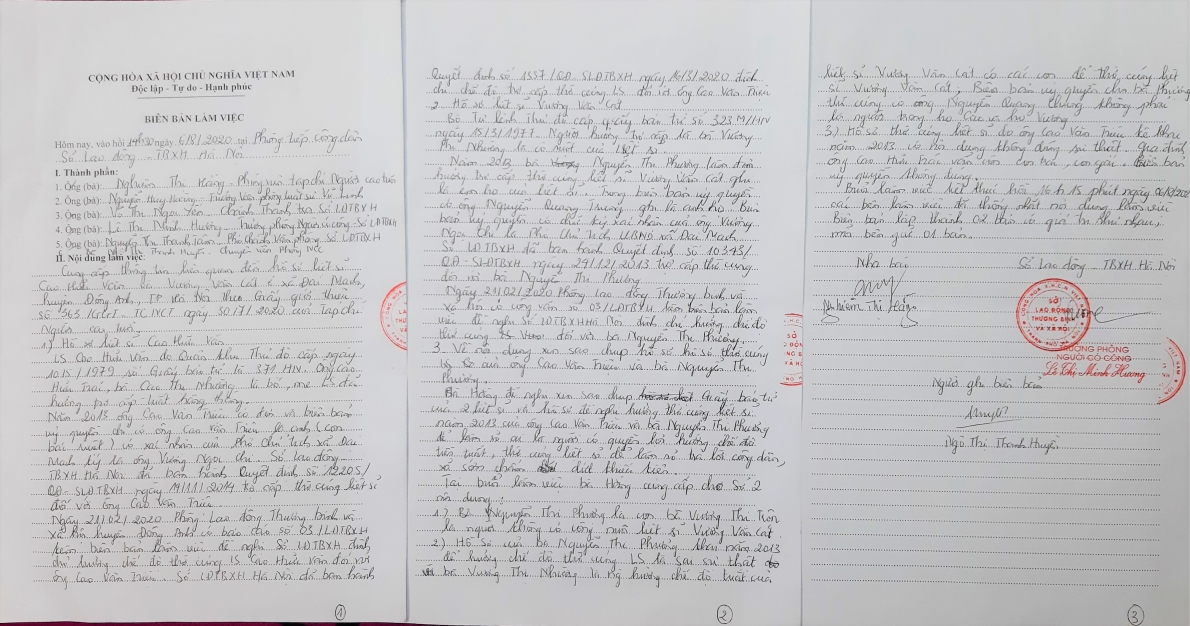 CỘNG HÒA XÃ HỘI CHỦ NGHĨA VIỆT NAM
Độc lập - Tự do - Hạnh phúc
BIÊN BẢN LÀM VIỆC
Hôm nay, vào hồi 14h30 ngày 6/8/2020 tại Phòng tiếp công dân
Sở Lao động - TBXH Hà Nội
I. Thành phần:
1. Ông (bà): Nghiêm Thị Hằng - Phóng viên tạp chí Người cao tuổi
2. Ông (bà): Nguyễn Huy Hoàng - Trưởng văn phòng luật sư
3. Ông (bà): Thanh tra Sở LĐTBXH
4. Ông (bà): Lê Thị Minh Hương - Trưởng phòng Người có công Sở LĐTBXH
5. Ông (bà): Nguyễn Thị Thanh - Phó Chánh Văn phòng Sở LĐTBXH
Thanh Huyền - Chuyên viên Phòng NCC
II. Nội dung làm việc:
Cung cấp thông tin liên quan đến hồ sơ liệt sĩ
Cao Hiếu Vấn và Vương Văn Cát ở xã Đại Mạch,
huyện Đông Anh, TP Hà Nội theo Giấy giới thiệu
số 363/GGT-TCNCT ngày 30/7/2020 của tạp chí
Người cao tuổi
1) Hồ sơ liệt sĩ Cao Hiếu Vấn
LS Cao Hiếu Vấn do Quân khu Thủ đô cấp ngày
10/5/1979 số Giấy báo tử là 371 HN. Ông Cao
Hiếu Trai, bà Cao Thị Nhường là bố, mẹ LS đã
hưởng trợ cấp tuất hàng tháng.
Năm 2013 ông Cao Văn Triều có đơn và biên bản
ủy quyền ghi có ông Cao Văn Triều là anh (con
bác ruột) có xác nhận của Phó chủ tịch xã Đại
Mạch ký là ông Vương Ngọc Chi. Sở Lao động
TBXH Hà Nội đã ban hành Quyết định số 12205/
QĐ-SLĐTBXH ngày 14/11/2014 trợ cấp thờ cúng liệt sĩ
đối với ông Cao Văn Triều
Ngày 21/02/2020 Phòng Lao động Thương binh và
Xã hội huyện Đông Anh có báo cáo số 03/LĐTBXH
kèm biên bản làm việc đề nghị Sở LĐTBXH đình
chỉ hưởng chế độ thờ cúng LS Cao Hiếu Vấn đối với
ông Cao Văn Triều. Sở LĐTBXH Hà Nội đã ban hành
1
Quyết định số 1557/QĐ-SLĐTBXH ngày 16/3/2020 đình
chỉ chế độ trợ cấp thờ cúng LS đối với ông Cao Văn Triều
2. Hồ sơ liệt sĩ Vương Văn Cát
Bộ Tư lệnh Thủ đô cấp giấy báo tử số 323M/HN
ngày 15/3/1977. Người hưởng trợ cấp là bà Vương
Thị Nhường là cô ruột của liệt sĩ.
Năm 2013 bà Nguyễn Thị Phương làm đơn
hưởng trợ cấp thờ cúng liệt sĩ Vương Văn Cát ghi
là em họ của liệt sĩ. Trong biên bản ủy quyền
có ông Nguyễn Quang Trung ghi là anh họ. Biên
bản ủy quyền có chữ ký xác nhận của ông Vương
Ngọc Chi là Phó Chủ tịch UBND xã Đại Mạch
Sở LĐTBXH đã ban hành Quyết định số 10343/
QĐ-SLĐTBXH ngày 24/12/2013 trợ cấp thờ cúng
đối với bà Nguyễn Thị Phương
Ngày 21/02/2020 Phòng Lao động Thương binh và
Xã hội có công văn số 03/LĐTBXH kèm biên bản làm
việc đề nghị Sở LĐTBXH Hà Nội đình chỉ hưởng chế độ
thờ cúng đối với bà Nguyễn Thị Phương.
3. Về nội dung xin sao chụp hồ sơ thờ cúng
LS của ông Cao Văn Triều và bà Nguyễn Thị
Phương.
Bà Hằng đề nghị xin sao chụp Giấy báo tử
của 2 liệt sĩ và hồ sơ đề nghị hưởng thờ cúng liệt sĩ
năm 2013 của ông Cao Văn Triều và bà Nguyễn Thị Phương
để làm rõ ai là người có quyền lợi hưởng chế độ
tiền tuất, thờ cúng liệt sĩ để làm rõ trả lời công dân,
và sớm chấm dứt khiếu kiện.
Tại buổi làm việc bà Hằng cung cấp cho Sở 2
nội dung:
1) Bà Nguyễn Thị Phương là con bà Vương Thị
là người không có công nuôi liệt sĩ Vương Văn Cát
2) Hồ sơ của bà Nguyễn Thị Phương khai năm 2013
để hưởng chế độ thờ cúng LS là sai sự thật
với bà Vương Thị Nhường là hưởng chế độ tuất của
2
liệt sĩ Vương Văn Cát có các con để thờ cúng liệt
sĩ Vương Văn Cát, Biên bản ủy quyền cho bà Phương
thờ cúng có ông Nguyễn Quang Chung không phải
là người trong họ Cao và họ Vương
3) Hồ sơ thờ cúng liệt sĩ do ông Cao Văn Triều kê khai
năm 2013 có nội dung không đúng sự thật. Gia đình
ông Cao Hiếu Trai vẫn còn con trai, con gái. Biên bản
ủy quyền không đúng.
Buổi làm việc kết thúc hồi 16h15 phút ngày 06/8/2020
các bên làm việc đã thống nhất nội dung làm việc
Biên bản lập thành 02 bản có giá trị như nhau,
mỗi bên giữ 01 bản.
Nhà báo
Sở Lao động - TBXH Hà Nội
Nghiêm Thị Hằng
SỞ
LAO ĐỘNG
THƯƠNG BINH
VÀ XÃ HỘI
TRƯỞNG PHÒNG
NGƯỜI CÓ CÔNG
Lê Thị Minh Hương
Người ghi biên bản
Huyền
Ngô Thị Thanh Huyền
3